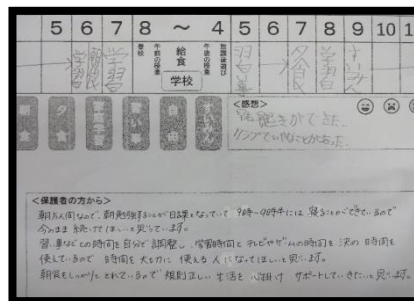 5 6 7 8 〜 4 5 6 7 8 9 10 1
学習 朝食 学習 登校 午前の授業 給食 午後の授業 放課後遊び 夕食 学習 すいみん
学校
朝食 夕食 自由 すいみん
<感想>
早起きができた。
<保護者の方から>
朝方人間なので、朝勉強することが日課となっていて 9時〜9時半には 寝ることができているので
今のまま続けてほしいと思っています。
習い事などの時間を自分で調整し、学習時間とテレビやゲームの時間を決め 時間を
使えているので 時間を大切に 使える人になってほしいと思います。
朝食もしっかりとれているので 規則正しい生活を心掛け サポートしていきたいと思います。